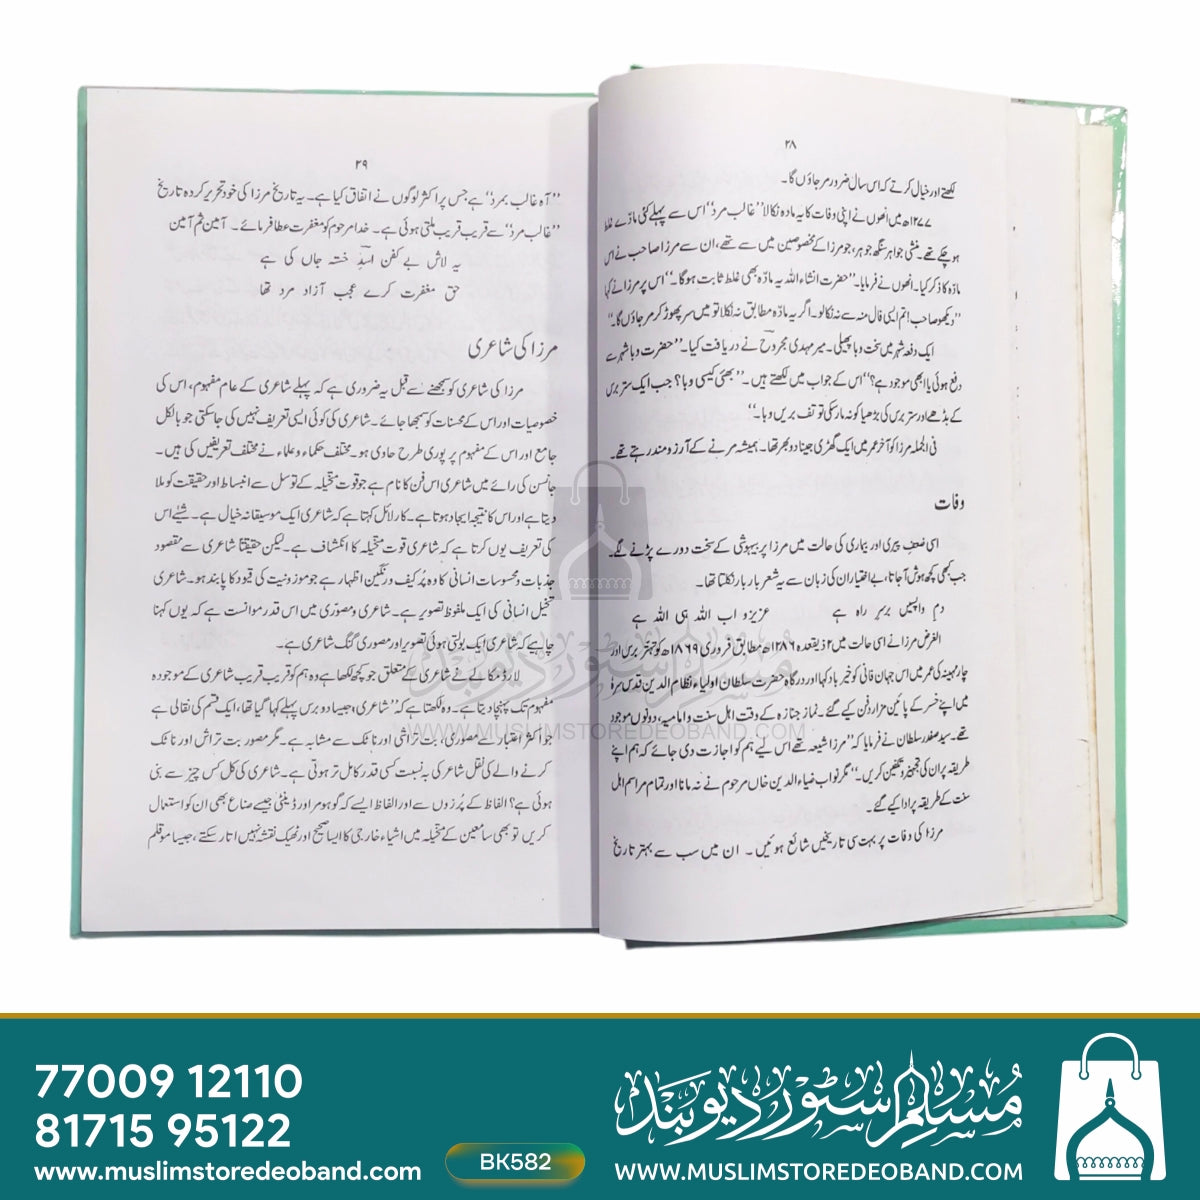 ۲۸
لکھتے اور خیال کرتے کہ اس سال ضرور مر جاؤں گا۔
۱۲۷۷ھ میں انھوں نے اپنی وفات کا یہ مادہ نکالا ’’غالب مرد‘‘ اس سے پہلے کئی مادّے غلط
ہو چکے تھے۔ منشی جواہر سنگھ جوہر، جو مرزا کے مخصوصین میں سے تھے، ان سے مرزا صاحب نے اس
مادہ کا ذکر کیا۔ انھوں نے فرمایا۔ ’’حضرت انشاء اللہ یہ مادّہ بھی غلط ثابت ہوگا۔‘‘ اس پر مرزا نے کہا
’’دیکھو صاحب! تم ایسی فال منہ سے نہ نکالو۔ اگر یہ مادّہ مطابق نہ نکلا تو میں سر پھوڑ کر مر جاؤں گا۔‘‘
ایک دفعہ شہر میں سخت وبا پھیلی۔ میر مہدی مجروحؔ نے دریافت کیا۔ ’’حضرت وبا شہر سے
دفع ہوئی یا ابھی موجود ہے؟‘‘ اس کے جواب میں لکھتے ہیں۔ ’’بھئی کیسی وبا؟ جب ایک ستر برس
کے بڈھے اور ستر برس کی بڑھیا کو نہ مار سکی تو تف بریں وبا۔‘‘
فی الجملہ مرزا کو آخر عمر میں ایک گھڑی جینا دوبھر تھا۔ ہمیشہ مرنے کے آرزو مند رہتے تھے۔
وفات
اسی ضعف پیری اور بیماری کی حالت میں مرزا پر بیہوشی کے سخت دورے پڑنے لگے۔
جب کبھی کچھ ہوش آجاتا، بے اختیار ان کی زبان سے یہ شعر بار بار نکلتا تھا۔
دم واپسیں بر سرِ راہ ہے عزیزو اب اللہ ہی اللہ ہے
الغرض مرزا نے اسی حالت میں ۲ ذیقعدہ ۱۲۸۶ھ مطابق فروری ۱۸۶۹ھ کو تہتر برس اور
چار مہینہ کی عمر میں اس جہان فانی کو خیر باد کہا اور درگاہ حضرت سلطان اولیاء نظام الدین قدس سرہٗ
میں اپنے خسر کے پائین مزار دفن کیے گئے۔ نماز جنازہ کے وقت اہل سنت و امامیہ، دونوں موجود
تھے۔ سید صفدر سلطان نے فرمایا کہ ’’مرزا شیعہ تھے اس لیے ہم کو اجازت دی جائے کہ ہم اپنے
طریقہ پر ان کی تجہیز و تکفین کریں۔‘‘ مگر نواب ضیاء الدین خاں مرحوم نے نہ مانا اور تمام مراسم اہل
سنت کے طریقہ پر ادا کیے گئے۔
مرزا کی وفات پر بہت سی تاریخیں شائع ہوئیں۔ ان میں سب سے بہتر تاریخ
۲۹
’’آہ غالب بمرد‘‘ ہے جس پر اکثر لوگوں نے اتفاق کیا ہے۔ یہ تاریخ مرزا کی خود تحریر کردہ تاریخ
’’غالب مرد‘‘ سے قریب قریب ملتی ہوئی ہے۔ خدا مرحوم کو مغفرت عطا فرمائے۔ آمین ثم آمین
یہ لاش بے کفن اسدؔ خستہ جاں کی ہے
حق مغفرت کرے عجب آزاد مرد تھا
مرزا کی شاعری
مرزا کی شاعری کو سمجھنے سے قبل یہ ضروری ہے کہ پہلے شاعری کے عام مفہوم، اس کی
خصوصیات اور اس کے محسنات کو سمجھا جائے۔ شاعری کی کوئی ایسی تعریف نہیں کی جاسکتی جو بالکل
جامع اور اس کے مفہوم پر پوری طرح حاوی ہو۔ مختلف حکماء و علماء نے مختلف تعریفیں کی ہیں۔
جانسن کی رائے میں شاعری اس فن کا نام ہے جو قوت متخیلہ کے توسل سے انبساط اور حقیقت کو ملا
دیتا ہے اور اس کا نتیجہ ایجاد ہوتا ہے۔ کارلائل کہتا ہے کہ شاعری ایک موسیقانہ خیال ہے۔ شیلے اس
کی تعریف یوں کرتا ہے کہ شاعری قوت متخیلہ کا انکشاف ہے۔ لیکن حقیقتاً شاعری سے مقصود
جذبات و محسوسات انسانی کا وہ پُر کیف و رنگین اظہار ہے جو موزونیت کی قیود کا پابند ہو۔ شاعری
تخیل انسانی کی ایک ملفوظ تصویر ہے۔ شاعری و مصوّری میں اس قدر موانست ہے کہ یوں کہنا
چاہیے کہ شاعری ایک بولتی ہوئی تصویر اور مصوری گنگ شاعری ہے۔
لارڈ مکالے نے شاعری کے متعلق جو کچھ لکھا ہے وہ ہم کو قریب قریب شاعری کے موجودہ
مفہوم تک پہنچا دیتا ہے۔ وہ لکھتا ہے کہ ’’شاعری، جیسا دو برس پہلے کہا گیا تھا، ایک قسم کی نقالی ہے
جو اکثر اعتبار سے مصوری، بت تراشی اور ناٹک سے مشابہ ہے۔ مگر مصور بت تراش اور ناٹک
کرنے والے کی نقل شاعر کی بہ نسبت کسی قدر کامل تر ہوتی ہے۔ شاعری کی کل کس چیز سے بنی
ہوئی ہے؟ الفاظ کے پُرزوں سے اور الفاظ ایسے کہ گو ہومر اور ڈینٹی جیسے صناع بھی ان کو استعمال
کریں تو بھی سامعین کے متخیلہ میں اشیاء خارجی کا ایسا صحیح اور ٹھیک نقشہ نہیں اتار سکتے، جیسا موقلم
مسلم سٹور دیوبند
WWW.MUSLIMSTOREDEOBAND.COM
77009 12110
81715 95122
www.muslimstoredeoband.com
BK582
مسلم سٹور دیوبند
WWW.MUSLIMSTOREDEOBAND.COM